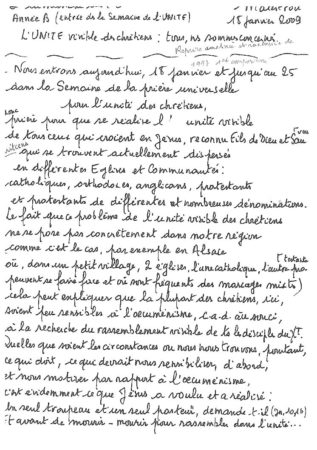 Année B (entrée ds la Semaine de l'UNITE) 18 janvier 2009
L'UNITE visible des chrétiens : tous, ns sommes concernés.
Reprise améliorée et raccourcie de
1997
. Nous entrons aujourd'hui, 18 janvier et jusqu'au 25
dans la Semaine de la prière universelle
pour l'unité des chrétiens,
prière pour que se réalise l' unité visible
de tous ceux qui croient en Jésus, reconnu Fils de Dieu et Sau
[veur
qui se trouvent actuellement dispersés
en différentes Eglises et Communautés:
catholiques, orthodoxes, anglicans, protestants
et protestants de différentes et nombreuses dénominations.
Le fait que ce problème de l'unité visible des chrétiens
ne se pose pas concrètement dans notre région
comme c'est le cas, par exemple en Alsace
où, dans un petit village, 2 églises, l'une catholique, l'autre pro
[testante
peuvent se faire face et où sont fréquents des mariages mixtes)
cela peut expliquer que la plupart des chrétiens, ici,
soient peu sensibles à l'oecuménisme, c.a.d. au souci,
à la recherche du rassemblement visible de ts les disciples du Xt.
Quelles que soient les circonstances ou nous nous trouvons, pourtant,
ce qui doit, ce qui devrait nous sensibiliser, d'abord,
et nous motiver par rapport à l'oecuménisme,
c'est évidemment ce que Jésus a voulu et a réalisé :
Un seul troupeau et un seul pasteur, demande-t-il (Jn,10,16)
et avant de mourir - mourir pour rassembler dans l'unité...